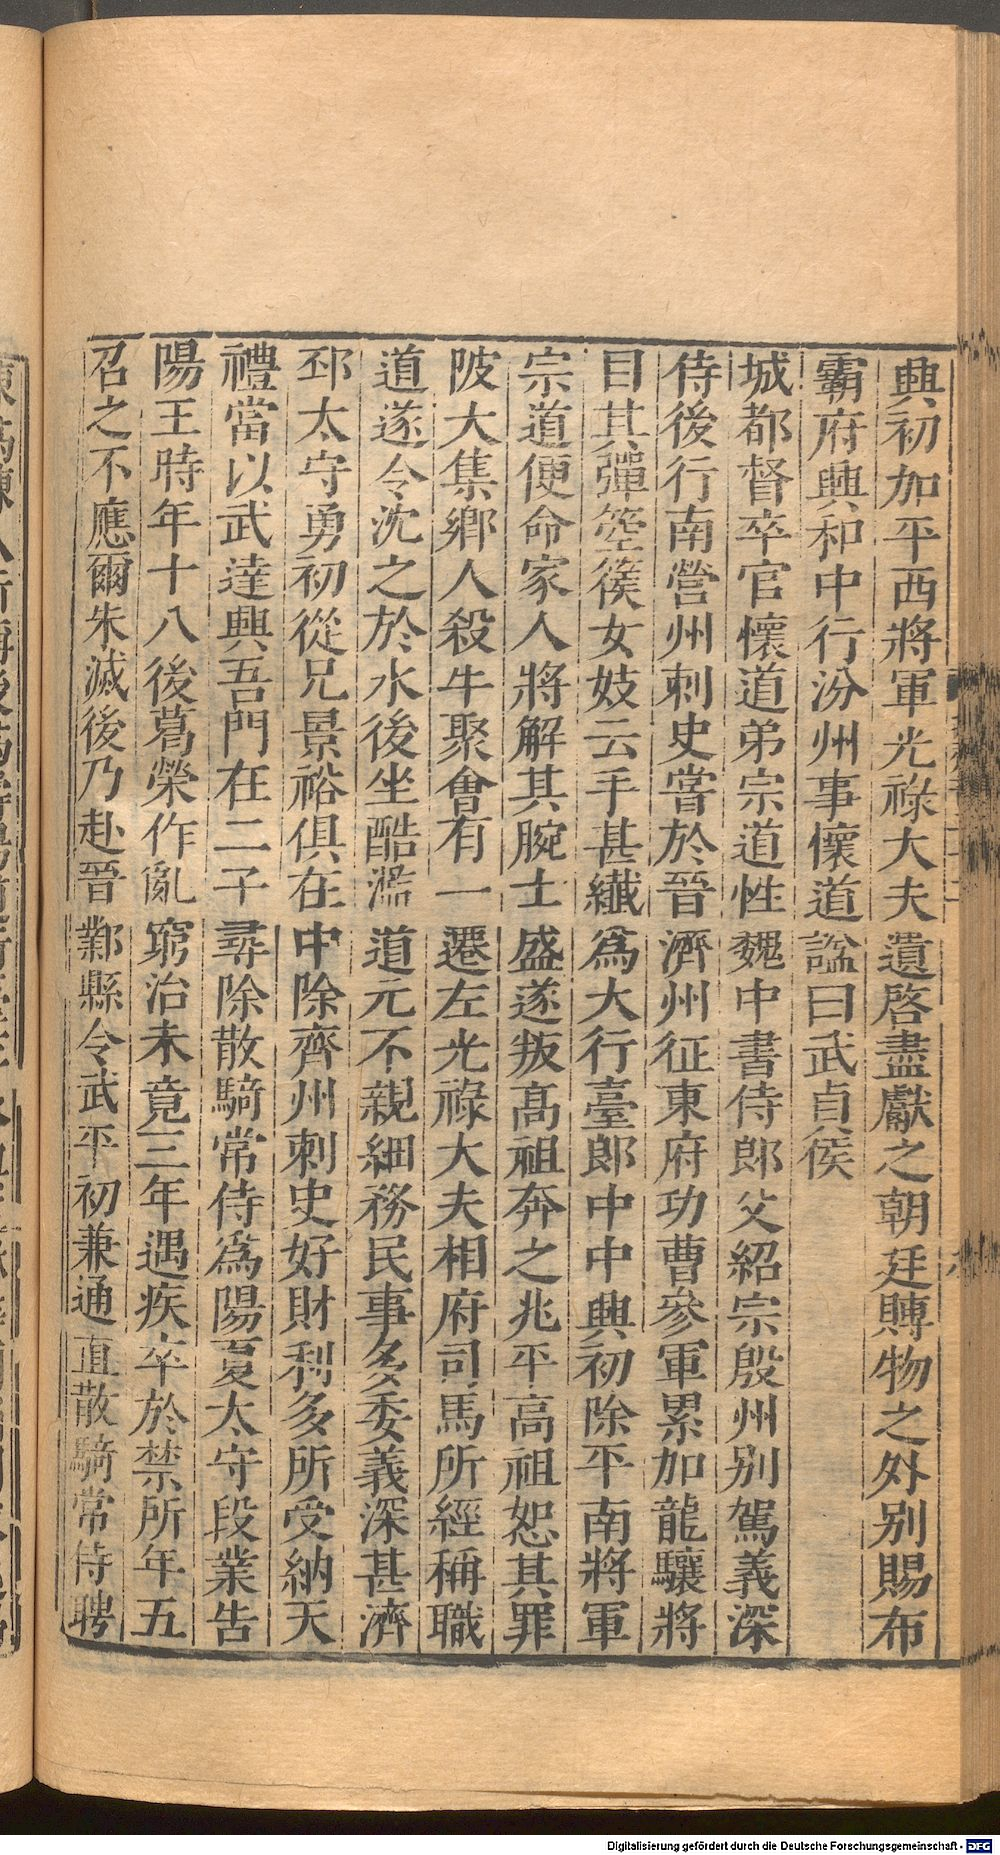 興初加平西將軍光祿大夫遺啓盡獻之朝廷賻物之外別賜布
霸府興和中行汾州事懷道諡曰武貞侯
城都督卒官懷道弟宗道性魏中書侍郎父紹宗殷州別駕義深
侍後行南營州刺史嘗於晉濟州征東府功曹參軍累加龍驤將
目其彈箜篌女妓云手甚纖爲大行臺郎中中興初除平南將軍
宗道便命家人將解其腕士盛遂叛高祖奔之兆平高祖恕其罪
陂大集鄉人殺牛聚會有一遷左光祿大夫相府司馬所經稱職
道遂令沈之於水後坐酷濫道元不親細務民事多委義深甚濟
邳太守勇初從兄景裕俱在中除齊州刺史好財利多所受納天
禮當以武達興吾門在二子尋除散騎常侍爲陽夏太守段業告
陽王時年十八後葛榮作亂窮治未竟三年遇疾卒於禁所年五
召之不應爾朱滅後乃赴晉鄴縣令武平初兼通直散騎常侍聘
Digitalisierung gefördert durch die Deutsche Forschungsgemeinschaft - DFG